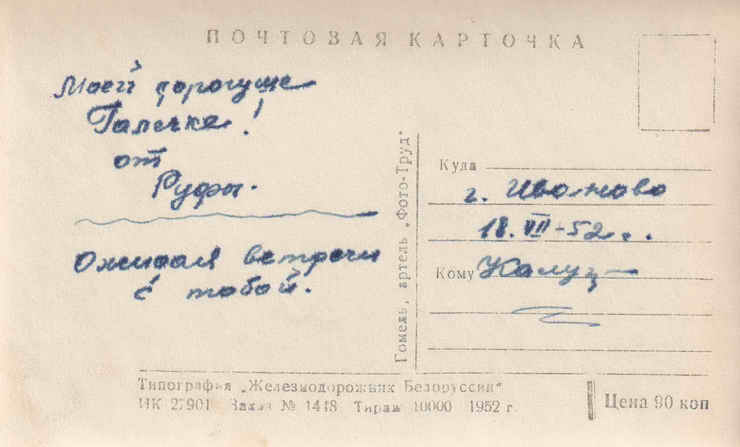 ПОЧТОВАЯ КАРТОЧКА
Моей дорогуше
Галечке!
от
Руфы.
Ожидая встречи
с тобой.
Гомель, артель „Фото-Труд“
Куда
г. Иваново
18.VII-52 г.
Кому
Типография „Железнодорожник Белоруссии“
НК 27901 Заказ № 1418 Тираж 10000 1952 г.
Цена 90 коп